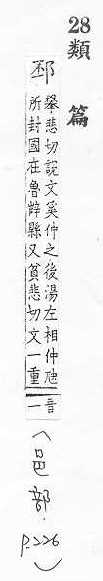 28
類篇
邳
攀悲切說文奚仲之後湯左相仲虺
所封國在魯辥縣又貧悲切文一重
音
一
(邑部.
P.226)